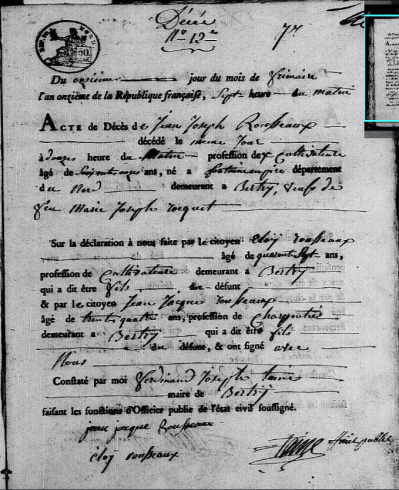 Décée
N.º 12.me
7.re
Du onzième jour du mois de frimaire
l'an onzième de la République française, Sept heure du matin
ACTE de Décès de Jean Joseph Rousseaux
décédé le meme Jour
à douze heure du Matin profession de Cultivateur
âgé de ans, né à département
du Nord demeurant à Bertry, veuf de
feu Marie Joseph
Sur la déclaration à nous faite par le citoyen Eloÿ rousseaux
âgé de quarante Sept ans,
profession de Cultivateur demeurant à Bertry
qui a dit être fils du défunt
& par le citoyen Jean Jacque rousseaux
âgé de trente quatre ans, profession de Charpentier
demeurant à Bertry qui a dit être fils
du défunt, & ont signé avec
Nous
Constaté par moi ferdinand Joseph taine
maire de Bertry
faisant les fonctions d'Officier public de l'état civil soussigné.
jean jacque Rousseaux
eloÿ rousseaux
taine